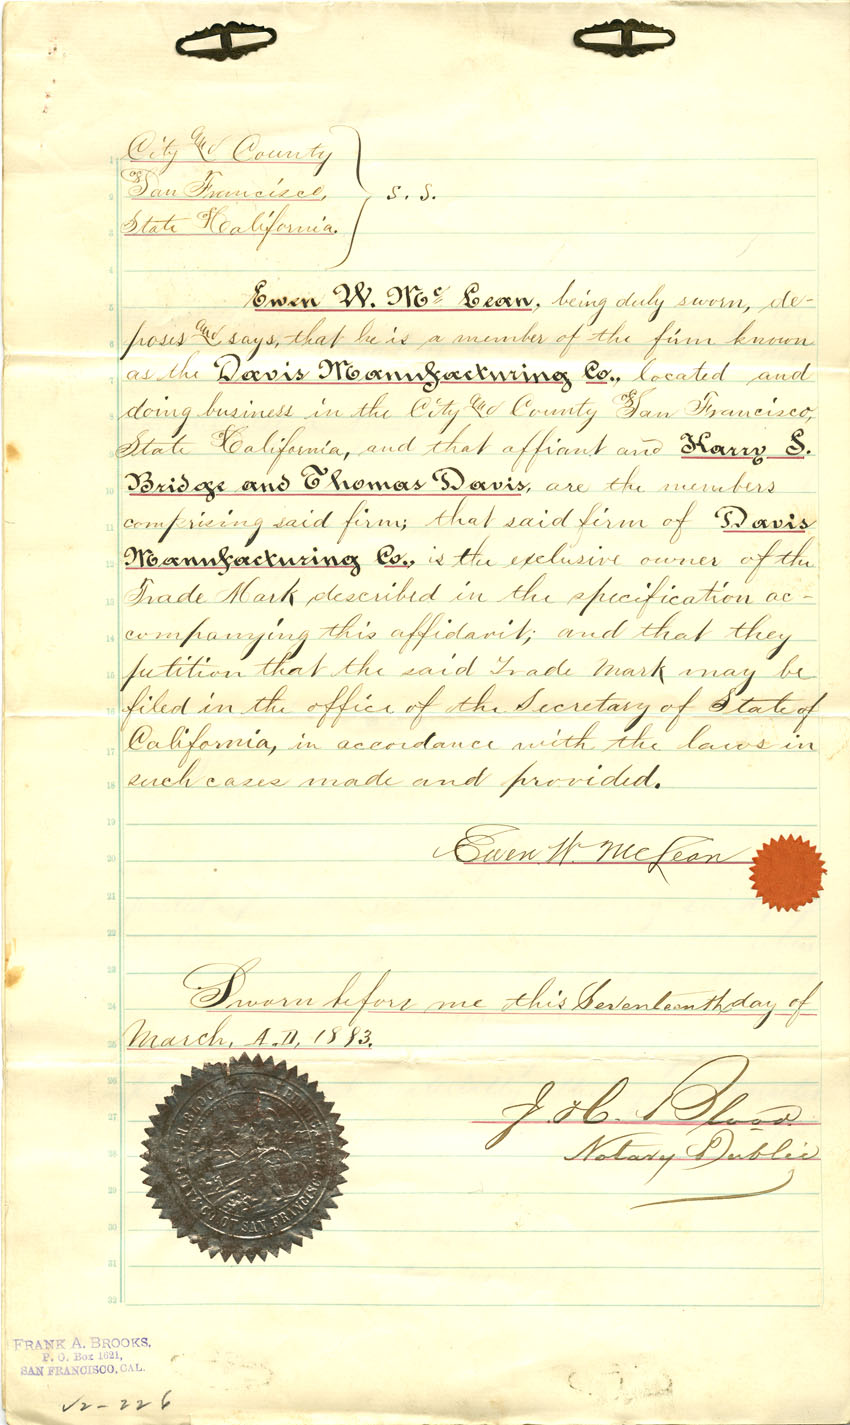 City and County
of San Francisco,
State of California.
S. S.
Ewen W. Mc Lean, being duly sworn, de-
poses and says, that he is a member of the firm known
as the Davis Manufacturing Co., located and
doing business in the City and County of San Francisco,
State of California, and that affiant and Harry S.
Bridge and Thomas Davis, are the members
comprising said firm; that said firm of Davis
Manufacturing Co., is the exclusive owner of the
Trade Mark described in the specification ac-
companying this affidavit; and that they
petition that the said Trade Mark may be
filed in the office of the Secretary of State of
California, in accordance with the laws in
such cases made and provided.
Ewen W. McLean
Sworn before me this Seventeenth day of
March, A.D. 1883.
J. H. Blood
Notary Public
J. H. BLOOD NOTARY PUBLIC
CITY & CO. OF SAN FRANCISCO
FRANK A. BROOKS,
P. O. Box 1621,
SAN FRANCISCO, CAL.
1
2
3
4
5
6
7
8
9
10
11
12
13
14
15
16
17
18
19
20
21
22
23
24
25
26
27
28
29
30
31
32